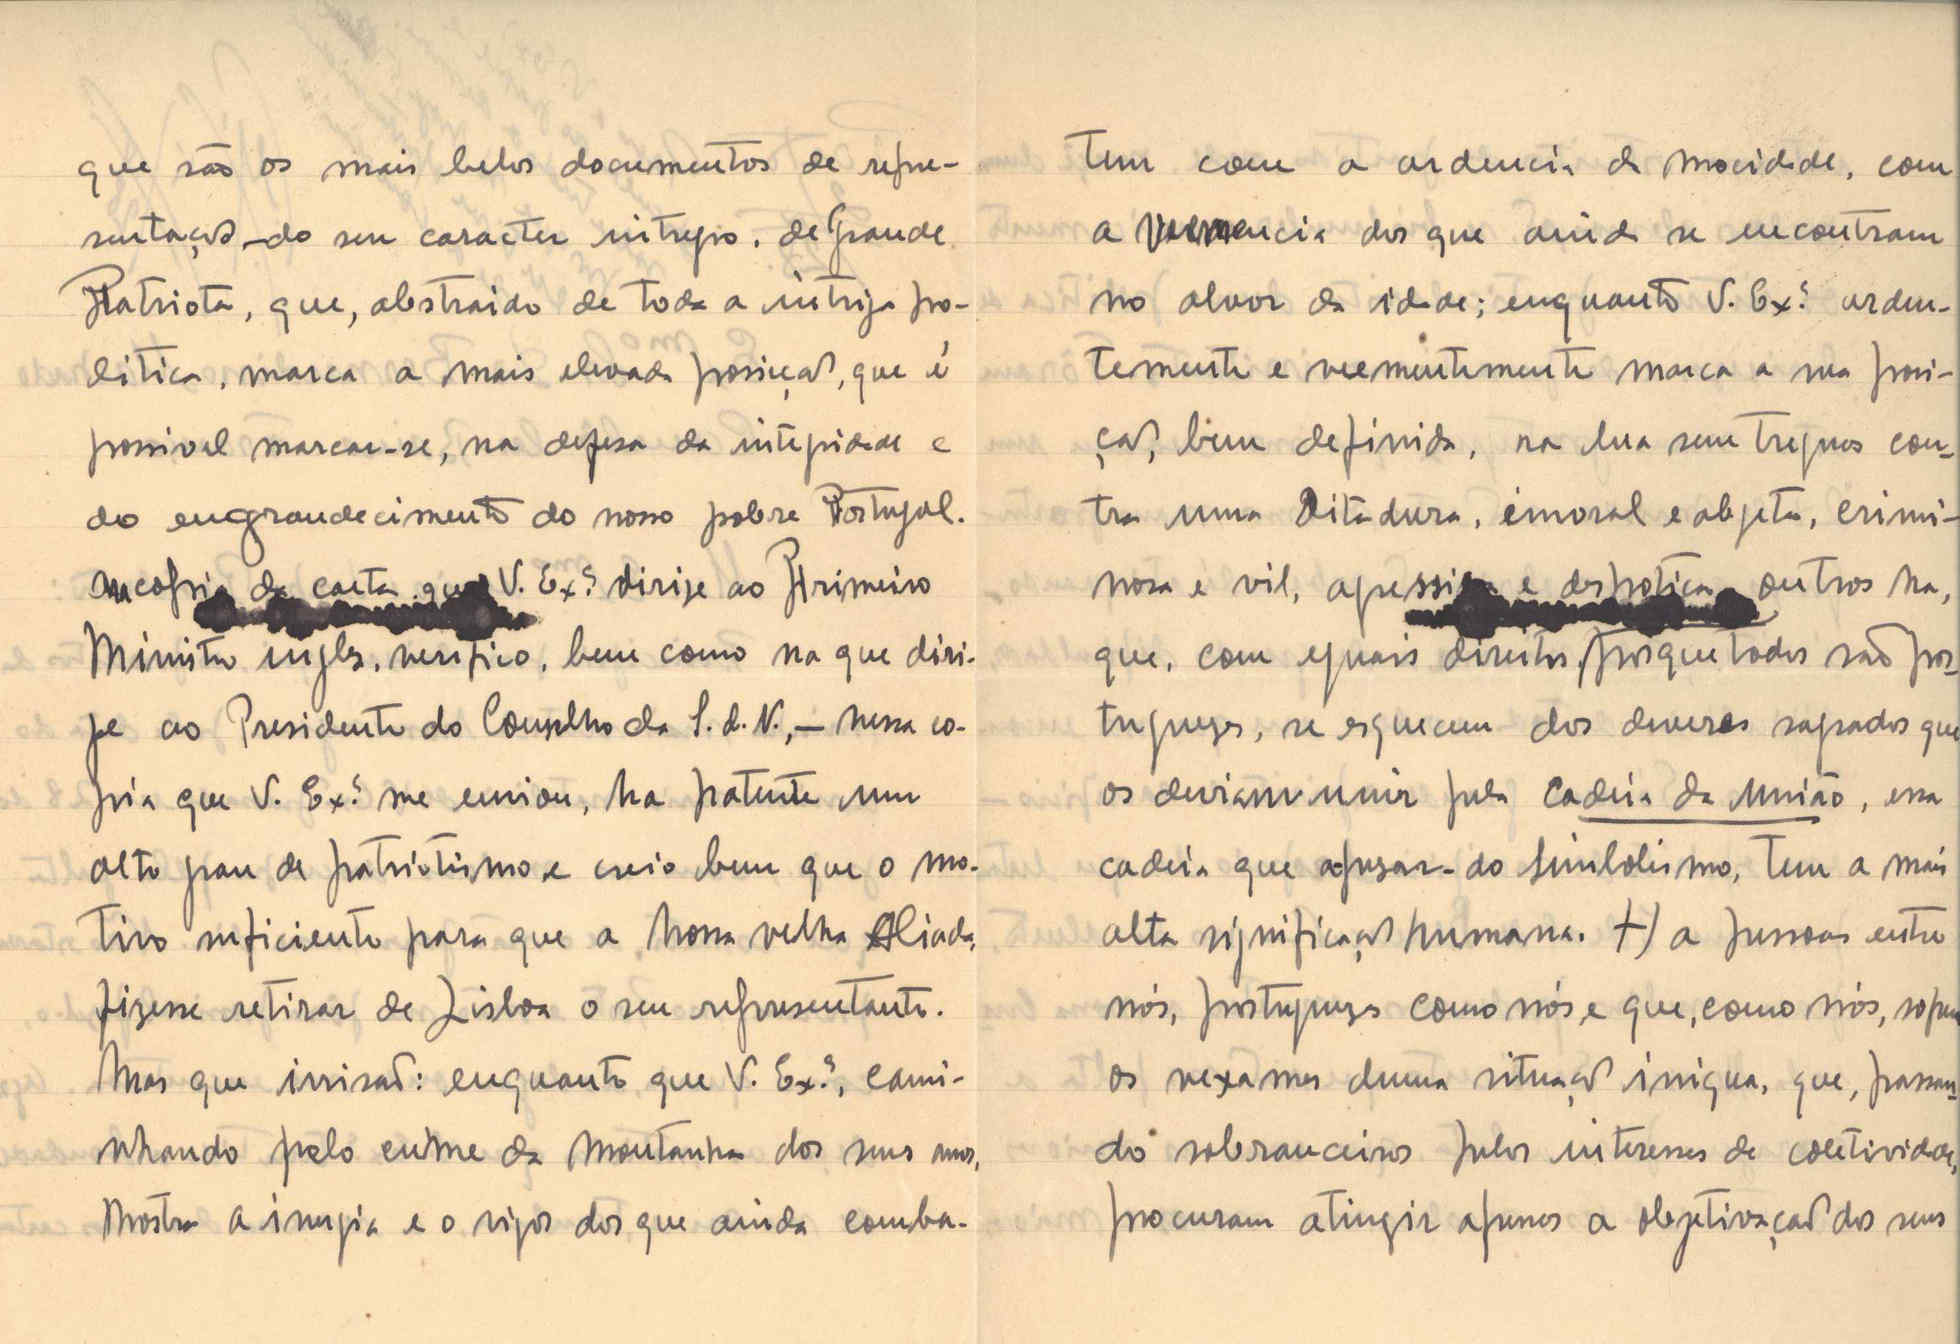 que são os mais belos documentos de repre-
sentação do seu caracter integro, de Grande
Patriota, que, abstraido de toda a intriga po-
litica, marca a mais elevada posição, que é
possivel marcar-se, na defesa da integridade e
do engrandecimento do nosso pobre Portugal.
Na copia da carta que V. Ex.ª dirige ao Primeiro
Ministro ingles, verifico, bem como na que diri-
ge ao Presidente do Conselho da S. d. N., — nessa co-
pia que V. Ex.ª me enviou, ha patente um
alto grau de patriotismo e creio bem que o mo-
tivo suficiente para que a nossa velha Aliada,
fizesse retirar de Lisboa o seu representante.
Mas que irrisão: enquanto que V. Ex.ª, cami-
nhando pelo cume da montanha dos seus anos,
mostra a energia e o vigor dos que ainda comba-
tem com a ardencia da mocidade, com
a veemencia dos que ainda se encontram
no alvor da idade; enquanto V. Ex.ª arden-
temente e veementemente marca a sua posi-
ção, bem definida, na lua sem treguas con-
tra uma Ditadura, imoral e abjeta, crimi-
nosa e vil, opressiva e despotica outros ha,
que, com eguais direitos, porque todos são por-
tuguezes, se esquecem dos deveres sagrados que
os deviam unir pela cadeia da União, essa
cadeia que apezar-do simbolismo, tem a mais
alta significação humana. Há pessoas entre
nós, portuguezes como nós e que, como nós, sofrem
os vexames duma situação iniqua, que, passan-
do sobranceiros pelos interesses da coletividade,
procuram atingir apenas a objetivação dos seus